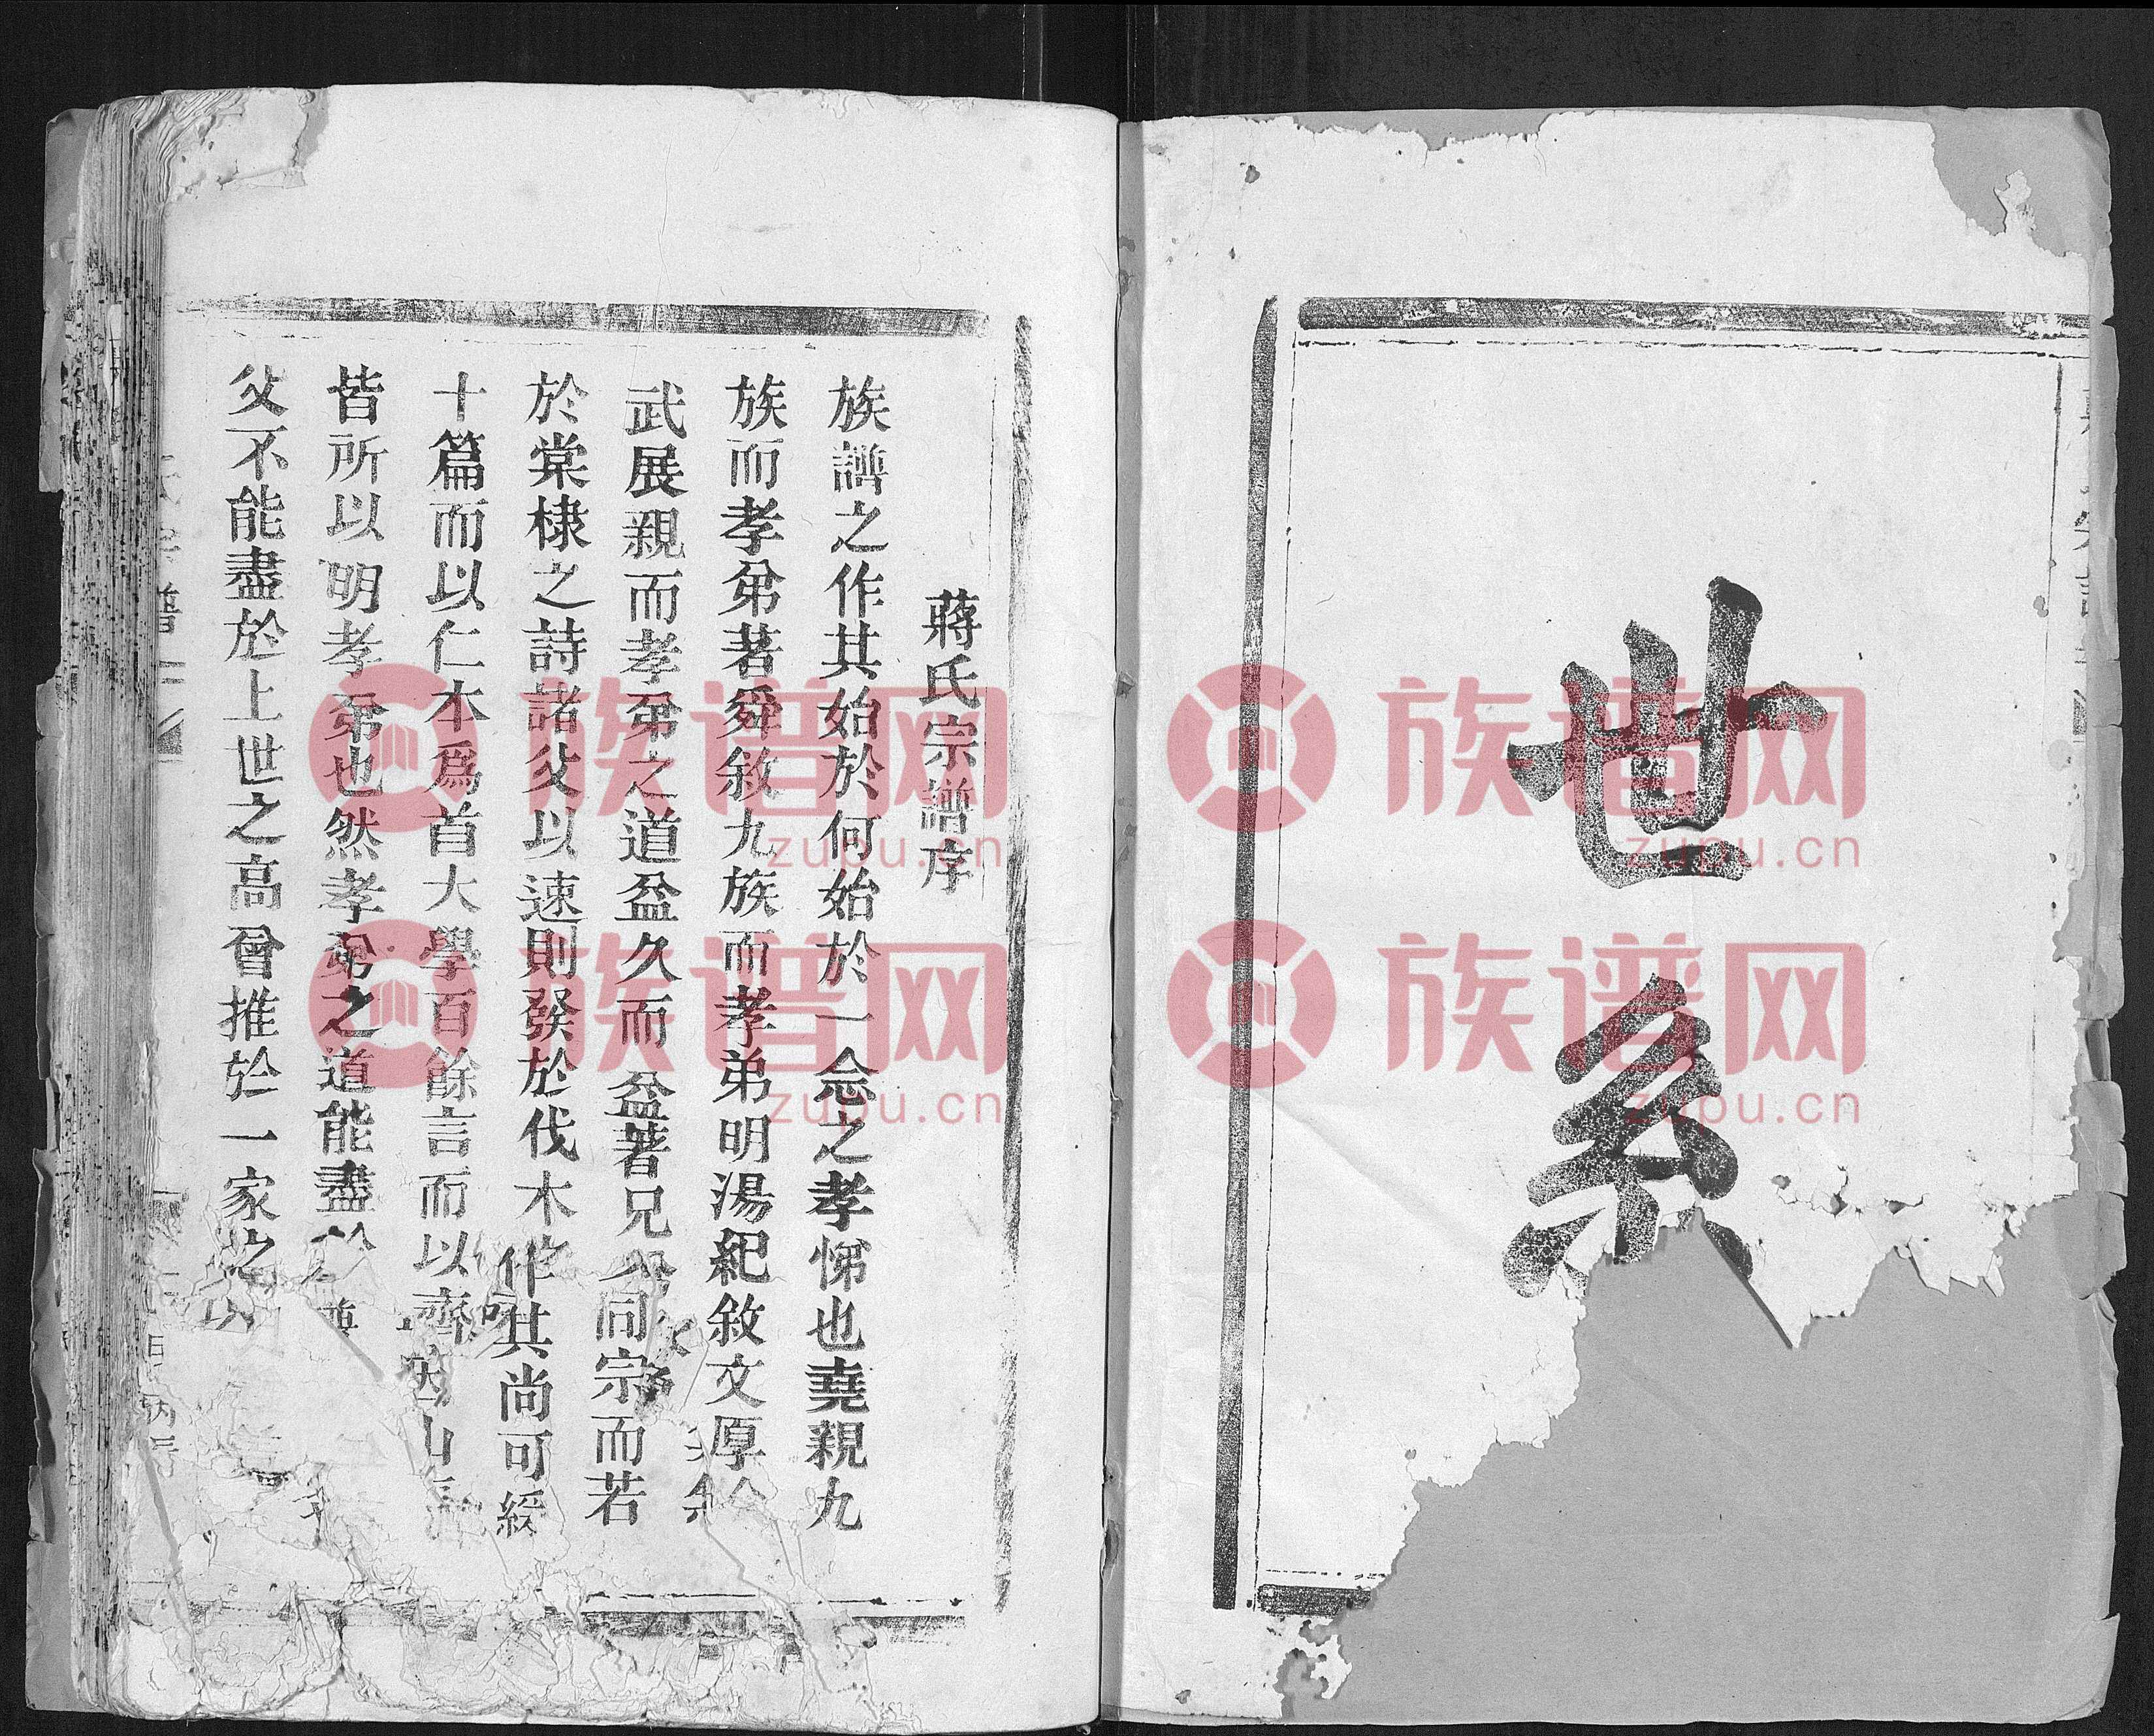 世系
蔣氏宗譜序
族譜之作其始於何始於一念之孝悌也堯親九
族而孝弟著舜敘九族而孝弟明湯紀敘文厚
武展親而孝弟之道益久而益著兄同宗而若
於棠棣之詩諸父以速則發於伐木作其尚可綏
十篇而以仁本爲首大學百餘言而以齊
皆所以明孝弟也然孝弟之道能盡
父不能盡於上世之高曾推於一家之
族谱网
zupu.cn
族谱网
zupu.cn
族谱网
zupu.cn
族谱网
zupu.cn